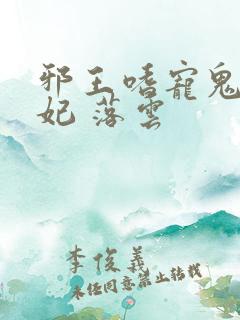 邪王嗜寵鬼
妃 落雲
李俊義
未任同意禁止转载